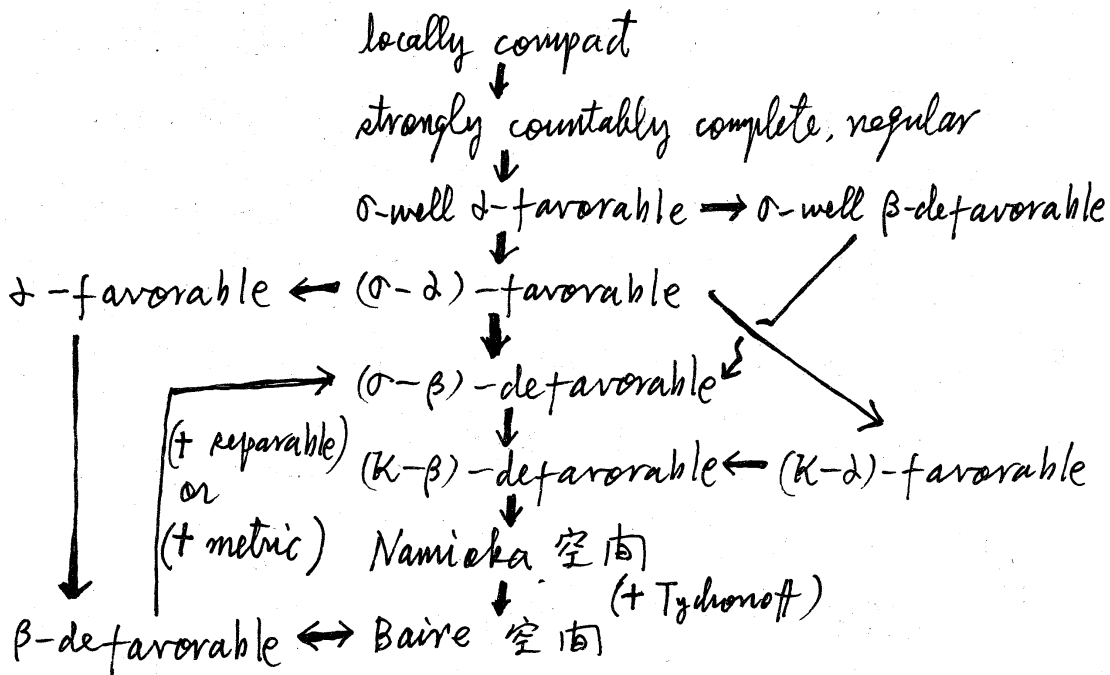 locally compact
strongly countably complete, regular
σ-well α-favorable → σ-well β-defavorable
α-favorable ← (σ-α)-favorable
(σ-β)-defavorable
(+ separable)
or
(+ metric)
(K-β)-defavorable ← (K-α)-favorable
Namioka 空間
(+ Tychonoff)
β-defavorable ↔ Baire 空間